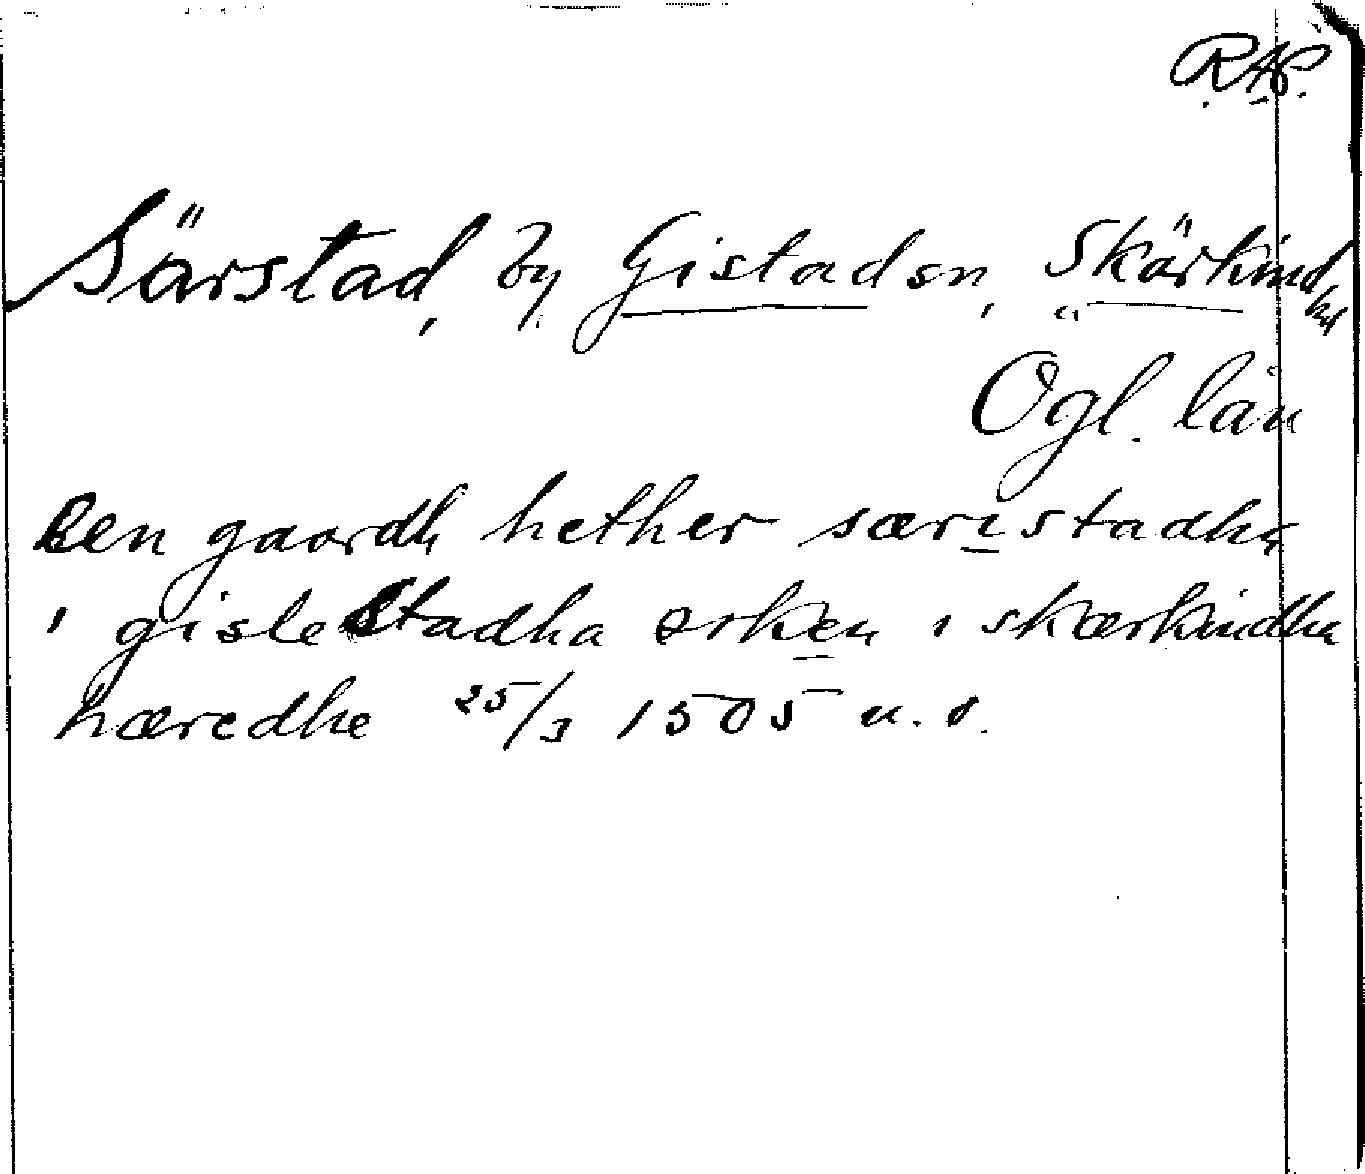 RAP.
Särstad, by Gistad sn, Skärkind hd
Ögl. län
Een gaardh hether særistadha
i gislestadha sokn i skærkindha
hæredhe 25/3 1505 u.o.